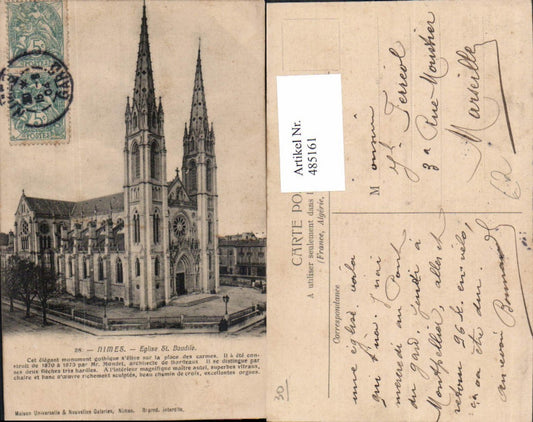 28. - NIMES. - Eglise St. Baudile.
Cet élégant monument gothique s'élève sur la place des carmes. Il a été con-
struit de 1870 à 1875 par Mr. Mondet, architecte de Bordeaux. Il se distingue par
ses deux flêches très hardies. A l'intérieur magnifique maître autel, superbes vitraux,
chaire et banc d'œuvre richement sculptés, beau chemin de croix, excellentes orgues.
Maison Universelle & Nouvelles Galeries, Nimes. Reprod. interdite.
5c
POSTES
5c
POSTES
GARD
Artikel Nr.
485161
CARTE PO
A utiliser seulement dans l
(France, Algérie,
Correspondance
Monsieur
Ferréol
3a Rue Moustier
Marseille
une église, voila
mercredi au Pont
du gard, jeudi à
Montpellier, aller et
retour 96 k. en vélo,
ça va être dur
au revoir
30